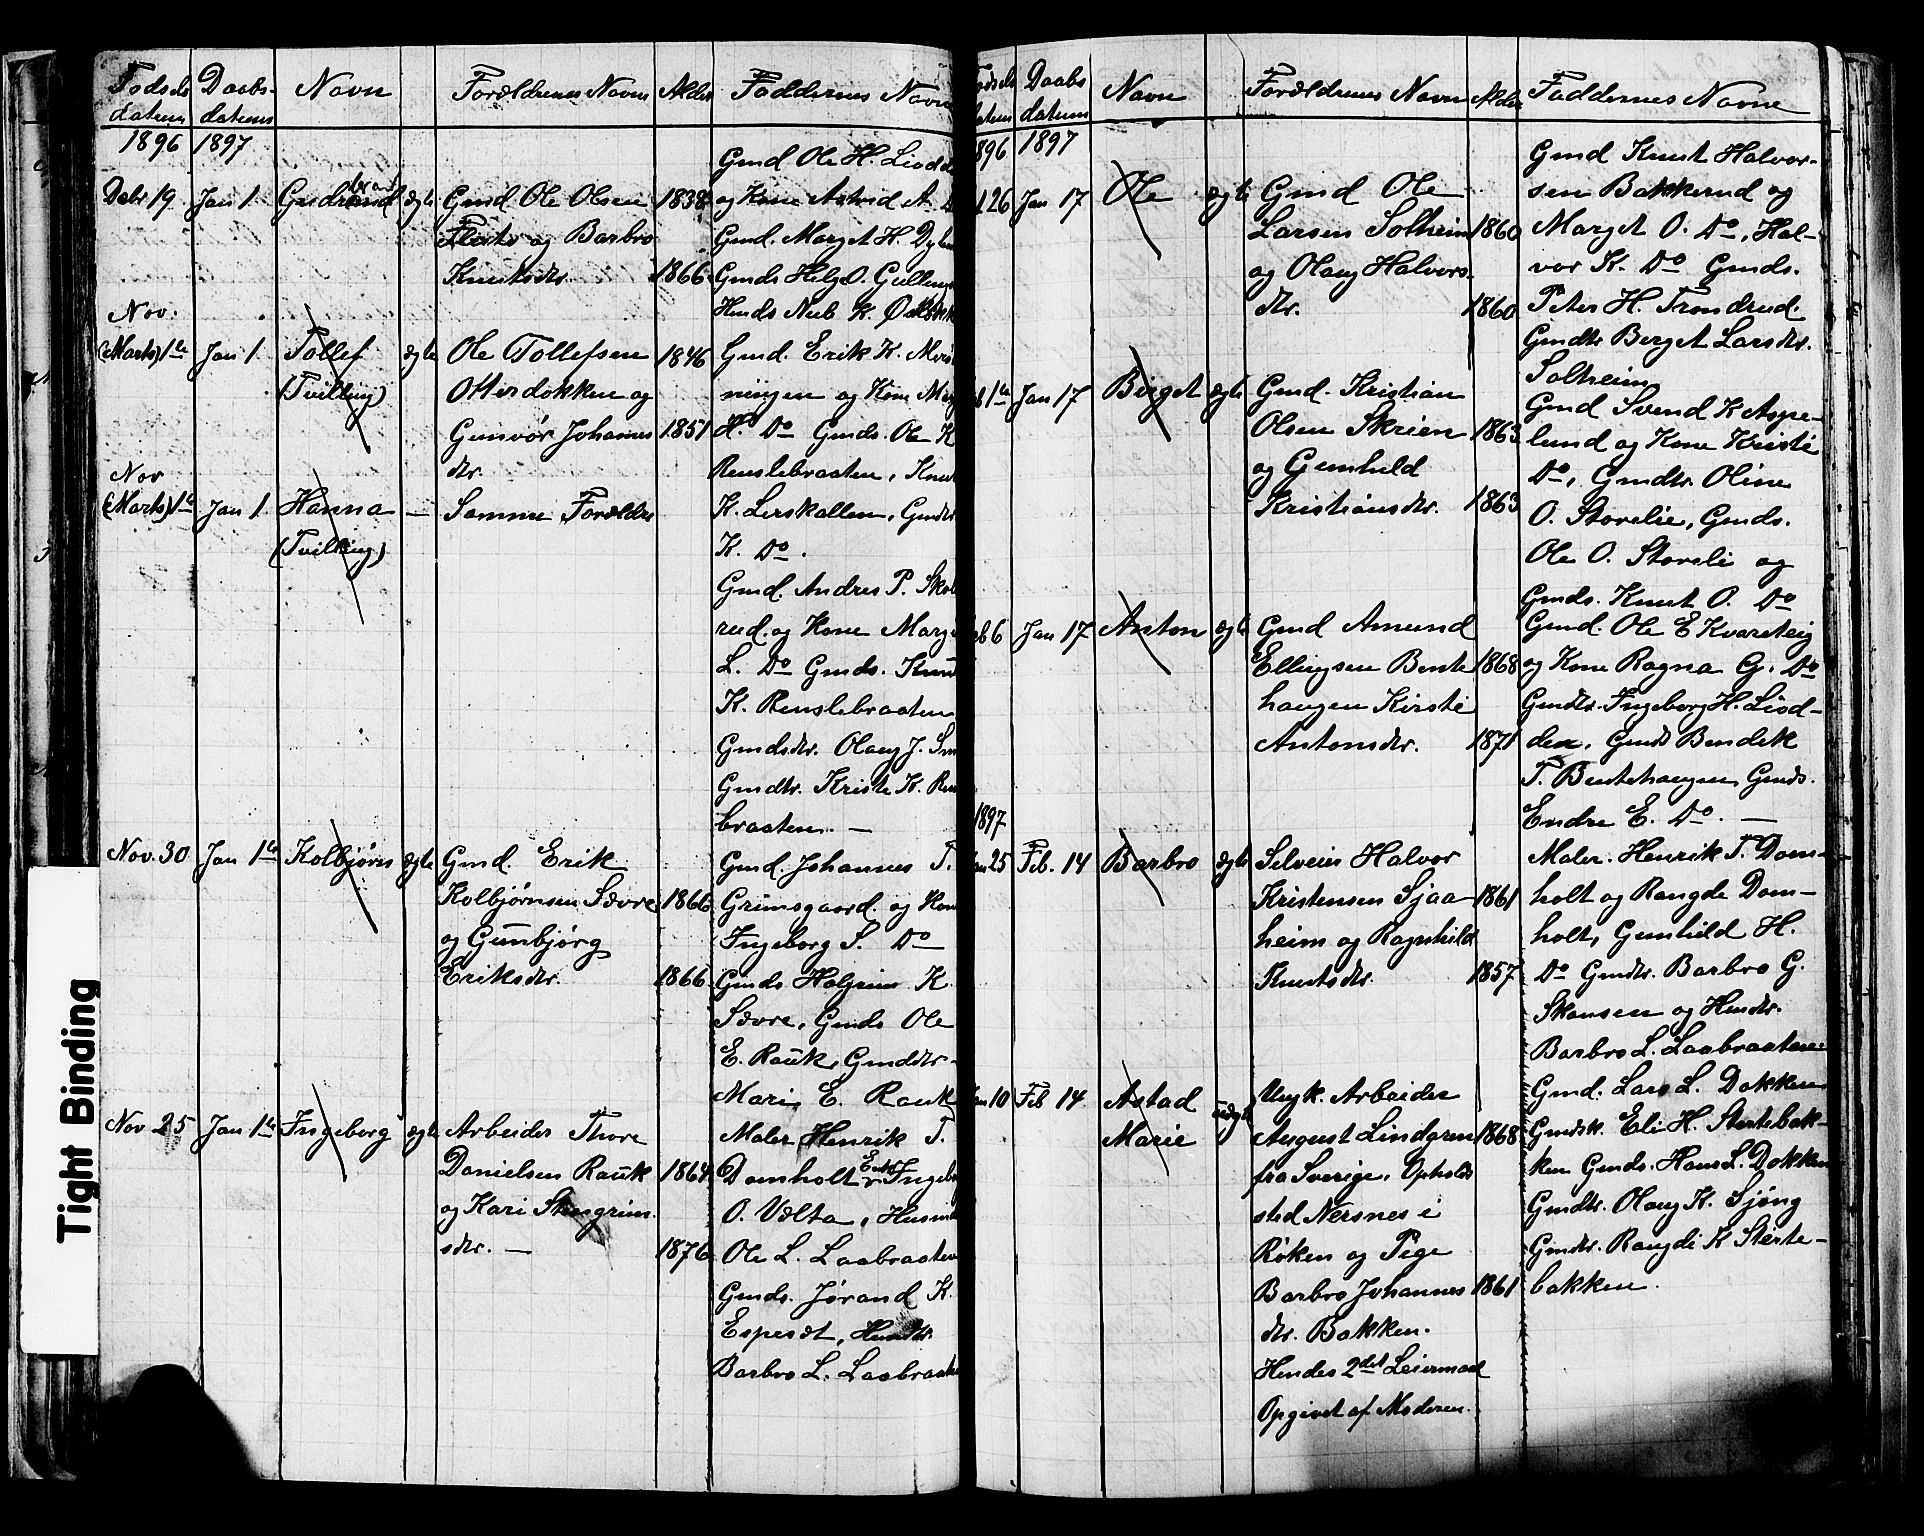 Fødsels
datum
Daabs-
datums
Navn
Forældrenes Navne
Alder
Faddernes Navn
1896
1897
Decbr 19
Jan 1
Gudbrand
ægte
Gmd Ole Olsen
og Barbro
Knutsdtr.
1838
1866
Gmd Ole H. Liodd
og Kone Astrid A. D
Gmd. Marget H.
Gmds Helge O.
K.
Nov.
(Marts) 1ste
Jan 1
Tollef
(Tvilling)
ægte
Ole Tollefsen
Otterdokken og
Gunvør Johannes
dtr.
1846
1851
Gmd. Erik K.
ningen og Kone
H. Do Gmds. Ole K
Renslebraaten, Knut
K. Lerskallen, Gmdtr.
K. Do.
Nov
(Marts) 1ste
Jan 1
Hanna
(Tvilling)
—
Samme Forældre
Gmd. Andres P.
rud. og Kone Marg
L. Do Gmds. Knud
K. Renslebraaten
Gmdsdtr. Olaug J.
Gmdtr. Kristi K. Ren
braaten. —
Nov. 30
Jan 1ste
Kolbjørn
ægte
Gmd. Erik
Kolbjørnsen Sævre
og Gunbjørg
Eriksdtr.
1866
1866
Gmd. Johannes T.
Grimsgaard. og Kon
Ingeborg S. Do
Gmds Halgrim K
Sævre, Gmds Ole
E. Rauk, Gmddtr-
Mari E. Rauk
Nov 25
Jan 1ste
Ingeborg
ægte
Arbeider Thore
Danielsen Rauk
og Kari
sdtr. —
1864
1876
Maler Henrik T.
Domholt Enke Ingeb
O. Vælta, Husm
Ole L. Laabraaten
Gmds. Jørand K.
Espesæt, Husmdtr.
Barbro L. Laabraate
datum
Daabs
datums
Navn
Forældrenes Navn
Alder
Faddernes Navne
896
1897
26
Jan 17
Ole
ægte
Gmd Ole
Larsen Solheim
og Olaug Halvors
dtr.
1860
1860
Gmd Knut Halvor-
sen Bakkerud og
Marget O. Do, Hal-
vor K. Do Gmds.
Peter H. Trondrud.
Gmdtr Berget Larsdtr.
Solheim
1ste
Jan 17
Birget
ægte
Gmd. Kristian
Olsen Skrien
og Gunhild
Kristiansdtr.
1863
1863
Gmd Svend K Aspe-
lund og Kone Kristi
Do, Gmdtr. Oline
O. Storelie, Gmds.
Ole O. Storeli og
Gmds. Knut O. Do
6
Jan 17
Anton
ægte
Gmd Amund
Ellingsen Bente
haugen Kirsti
Antonsdtr.
1868
1871
Gmd. Ole E Kvarsteig
og Kone Ragna G. Do
Gmdtr. Ingeborg H. Liod-
den, Gmds Bendik
T. Bentehaugen, Gmds.
Endre E. Do. —
1897
25
Feb. 14
Barbro
ægte
Selveier Halvor
Kristensen Sjaa
heim og Ragnhild
Knutsdtr.
1861
1857
Maler. Henrik T. Dom-
holt og Rangde Dom-
holt, Gunhild H.
Do Gmdtr. Barbro G.
Skansen og Husmdtr.
Barbro L. Laabraaten
10
Feb 14
Astad
Marie
uægte
Ungk. Arbeider
August Lindgren
fra Sverige, Opholds
sted Nersnes i
Røken og Pige
Barbro Johannes
dtr. Bakken.
Hendes 2det Leiermaal
Opgivet af Moderen.
1868
1861
Gmd. Lars L. Dokken
Gmdsk. Eli H. Stertebak-
ken Gmds. Hans L. Dokken
Gmdtr. Olaug K. Sjong
Gmdtr. Rangdi K Sterte-
bakken.
Tight Binding